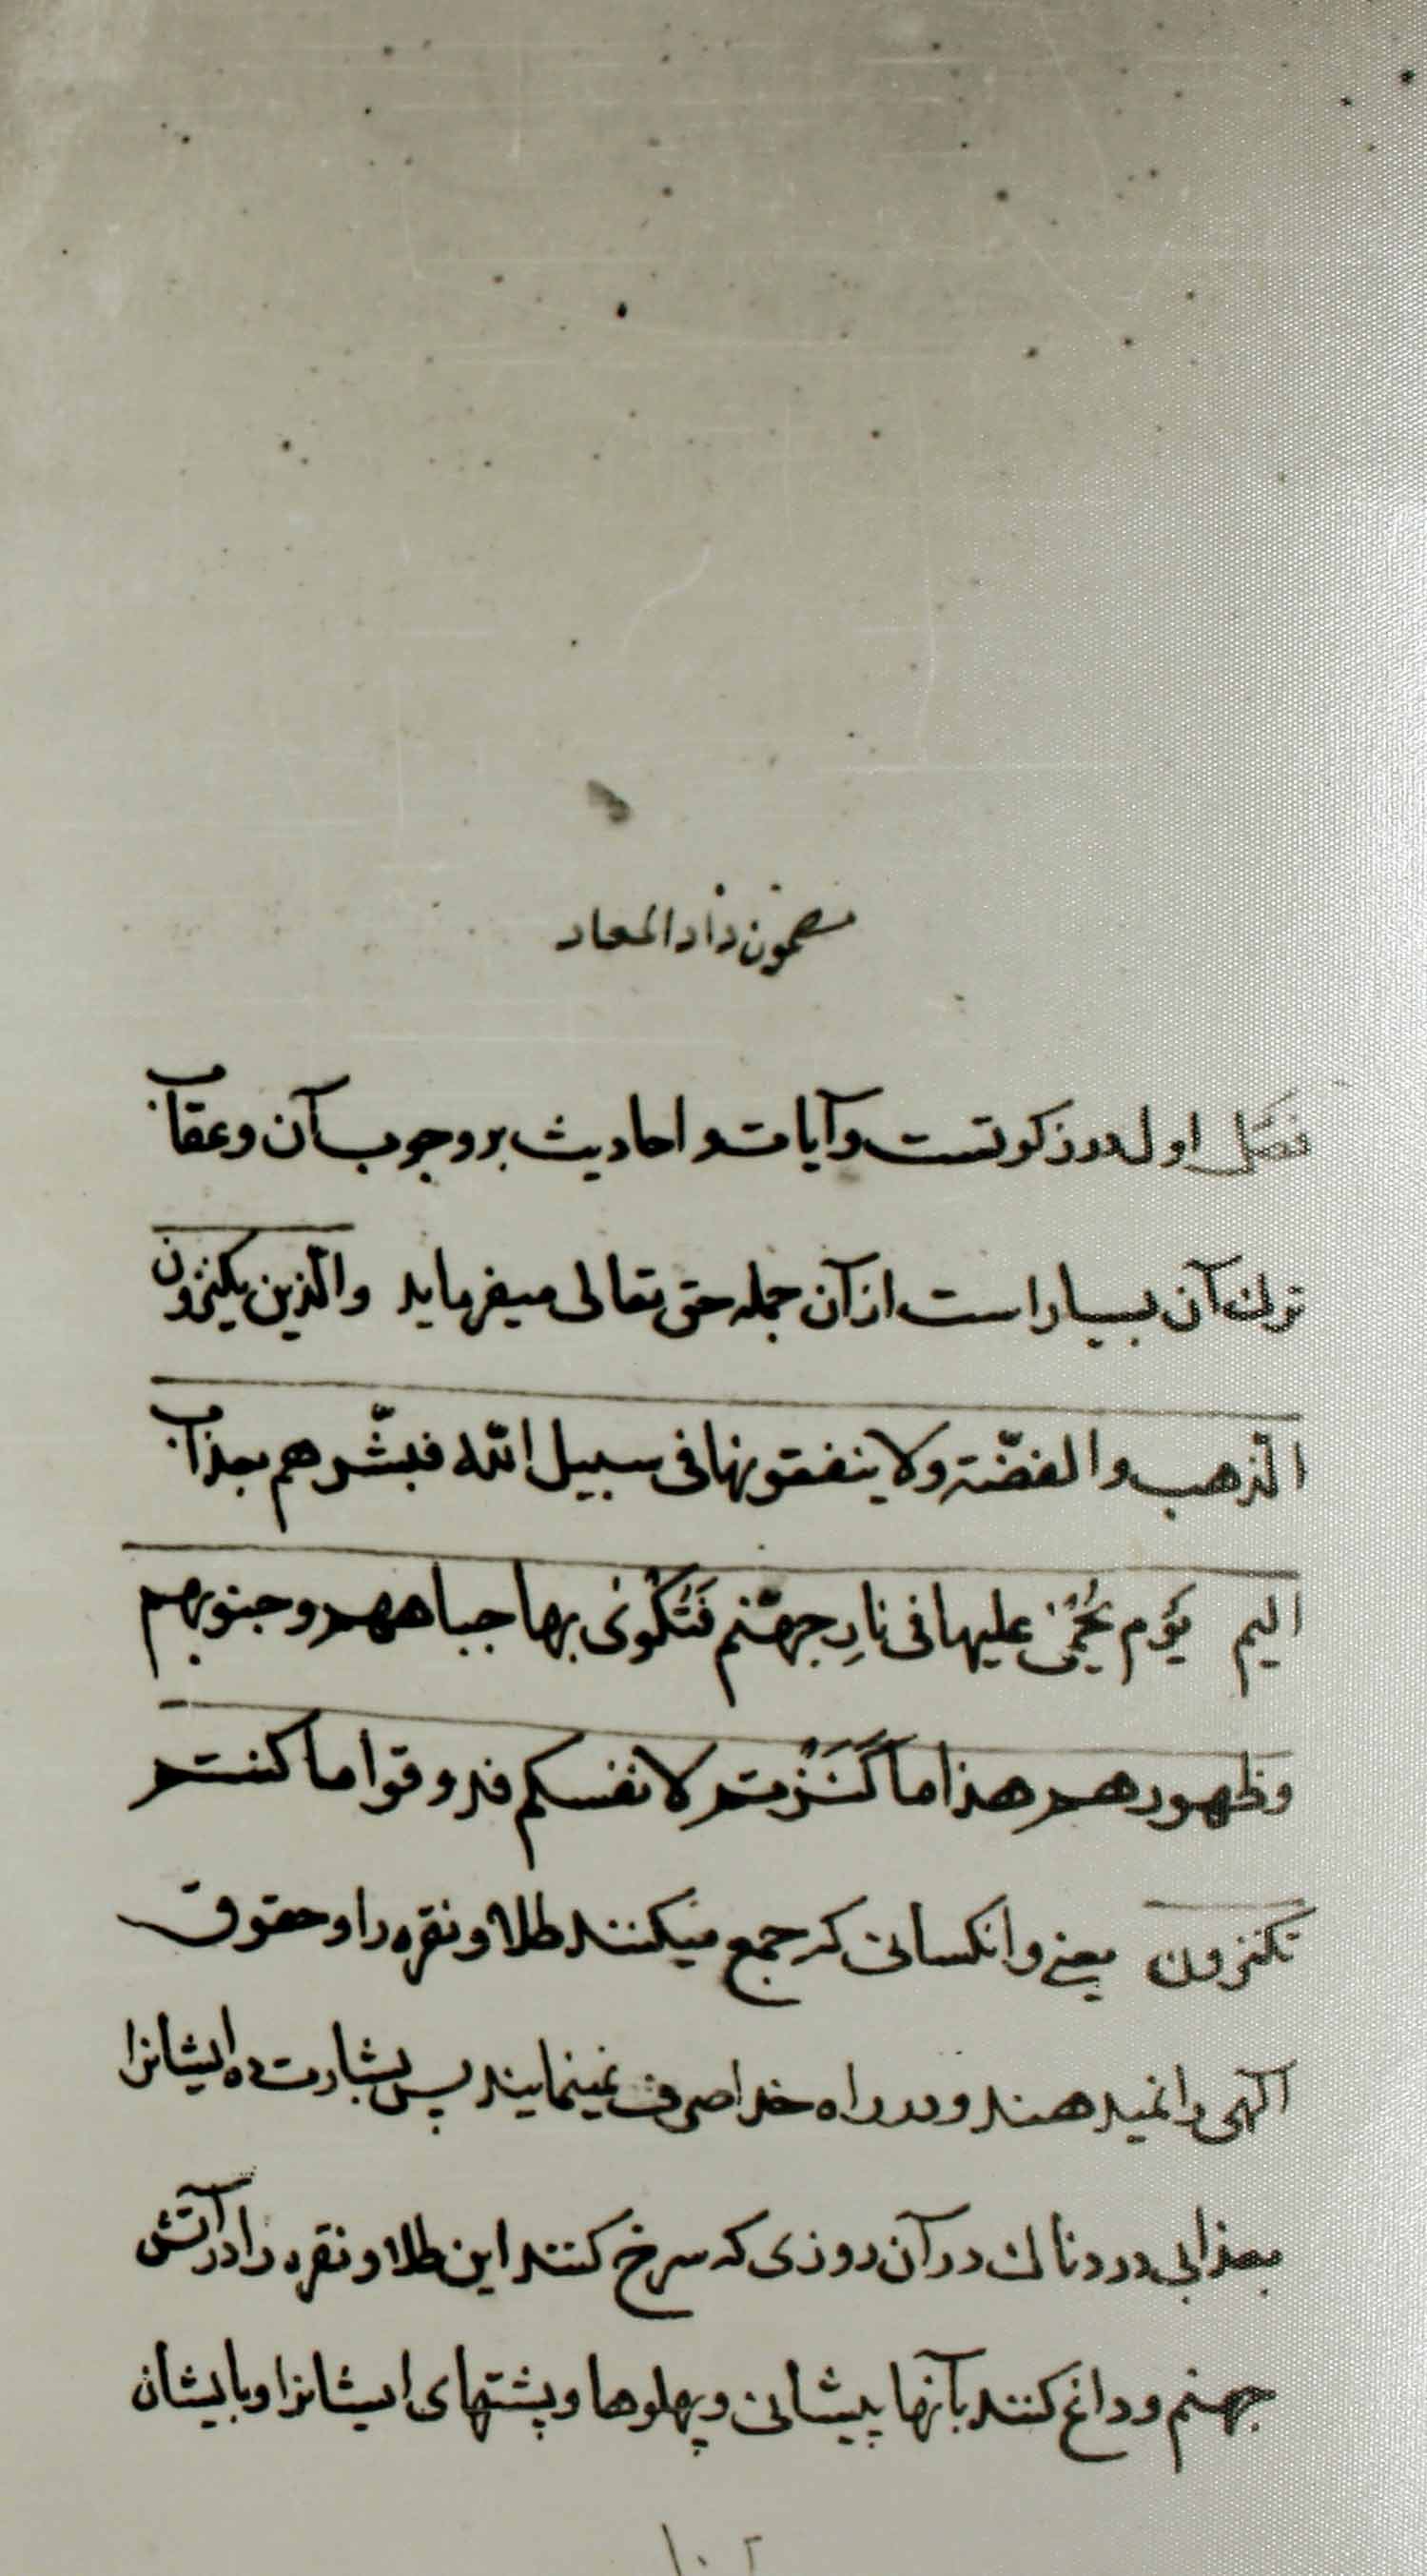 مضمون زاد المعاد
فصل اول در زکوتست و آیات و احادیث بر وجوب آن و عقاب
ترک آن بسیار است از آن جمله حق تعالی میفرماید والّذین یکنزون
الذهب والفضّة ولا ینفقونها فی سبیل الله فبشّرهم بعذاب
الیم یَوْم یُحْمیٰ علیها فی نارِ جهنّم فَتُکْویٰ بها جباههم وجنوبهم
وظهورهم هذا ما کَنَزْتم لانفسکم فذوقوا ما کنتم
تکنزون یعنی و انکسانی که جمع میکنند طلا و نقره را و حقوق
الهی را نمیدهند و در راه خدا صرف نمینمایند پس بشارت ده ایشانرا
بعذابی دردناک در آن روزی که سرخ کنند این طلا و نقره را در آتش
جهنم و داغ کنند بآنها پیشانی و پهلوها و پشتهای ایشانرا و بایشان